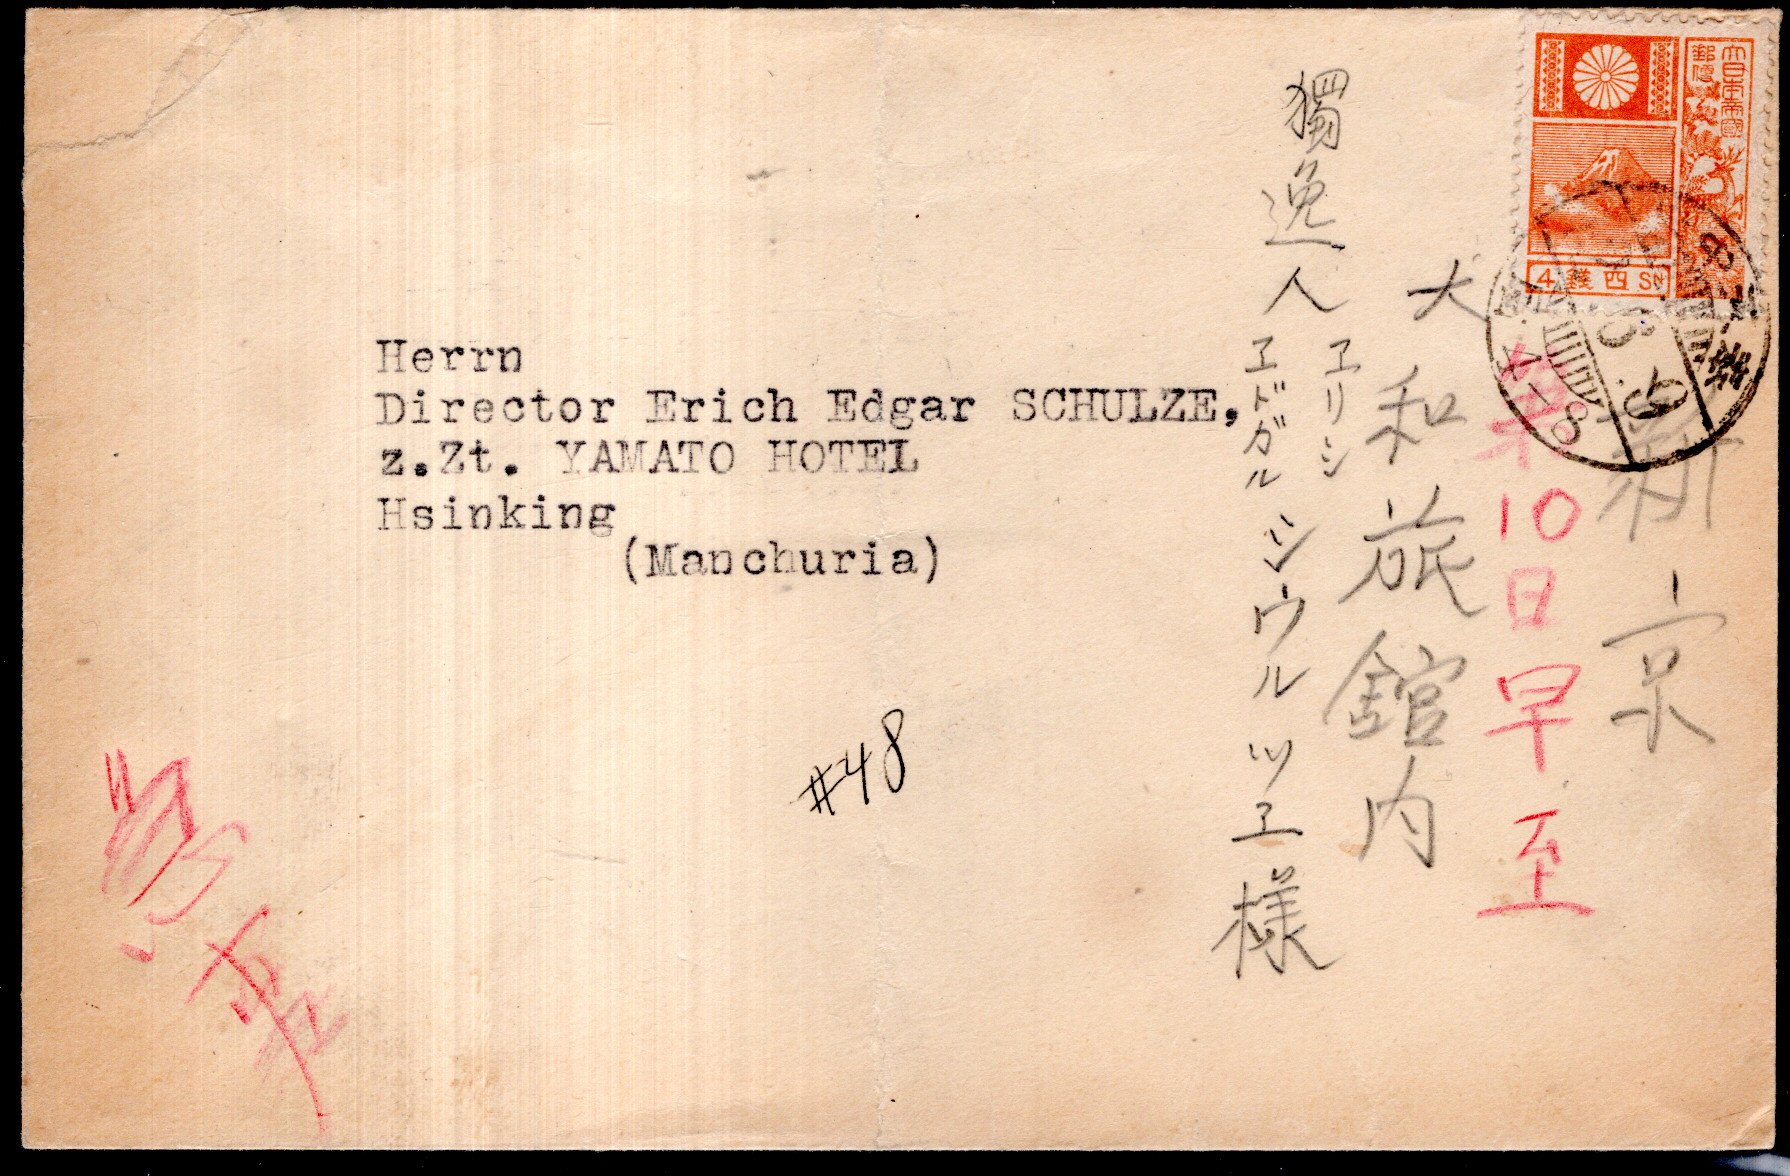 Herrn
Director Erich Edgar SCHULZE,
z.Zt. YAMATO HOTEL
Hsinking
(Manchuria)
#48
新京
10日早至
大和旅館内
獨逸人
ヱリシ
ヱドガル
シウルツヱ様
大日本帝國
郵便
4 錢四 SN